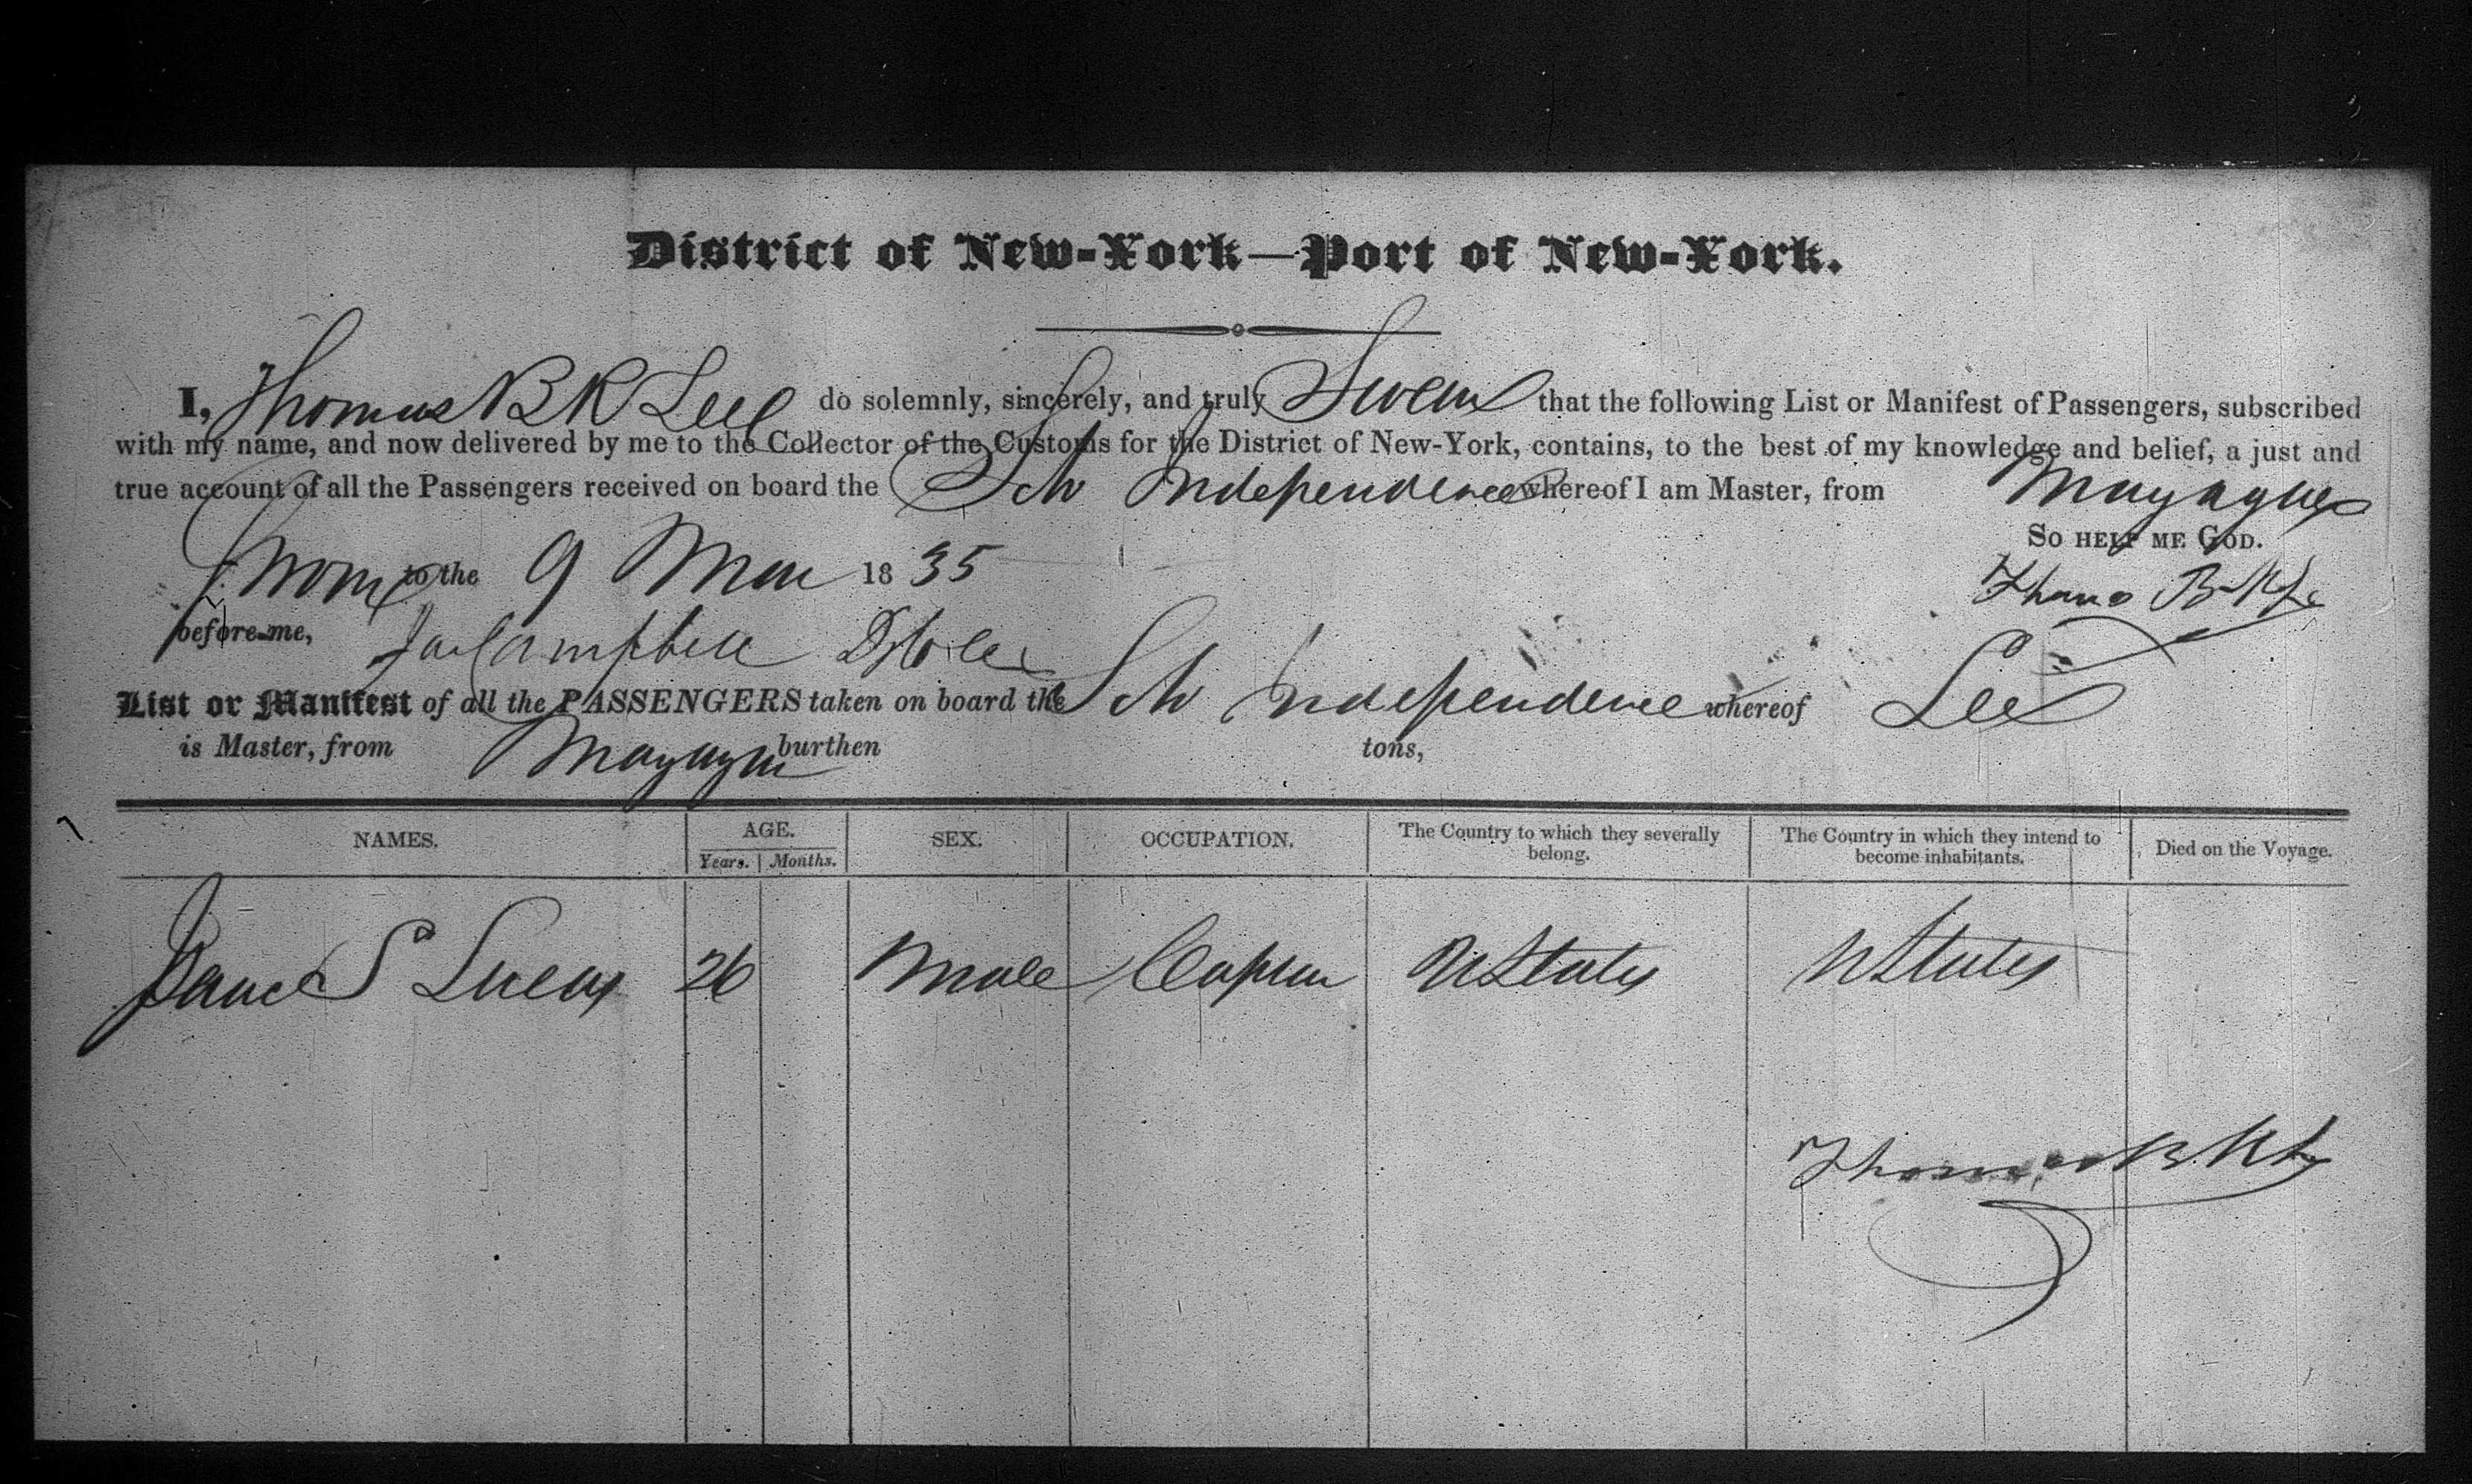 District of New-York—Port of New-York.
I, Thomas B R Lee do solemnly, sincerely, and truly Swear that the following List or Manifest of Passengers, subscribed
with my name, and now delivered by me to the Collector of the Customs for the District of New-York, contains, to the best of my knowledge and belief, a just and
true account of all the Passengers received on board the Sch Independence whereof I am Master, from Mayagues
So help me God.
Sworn to the 9 Mar 1835
before me, Campbell
List or Manifest of all the PASSENGERS taken on board the Sch Independence whereof Lee
is Master, from Mayagues burthen tons,
NAMES. AGE. Years. Months. SEX. OCCUPATION. The Country to which they severally belong. The Country in which they intend to become inhabitants. Died on the Voyage.
S Lucas 26 Male Captain U States U States